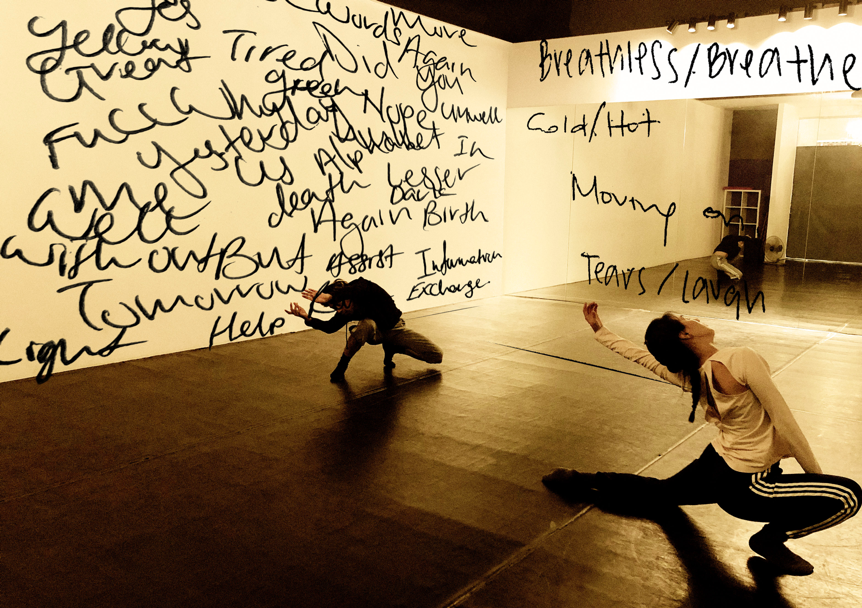 Yes Words Move
Yellow Tired Did Again
Green You
Fucc What Nope unwell
Yesterday Us Alphabet In
death Lesser
Well Again Birth
without But Assist Information
Tomorrow Exchange.
Light Help
Breathless/Breathe
Cold/Hot
Moving on
Tears/laugh